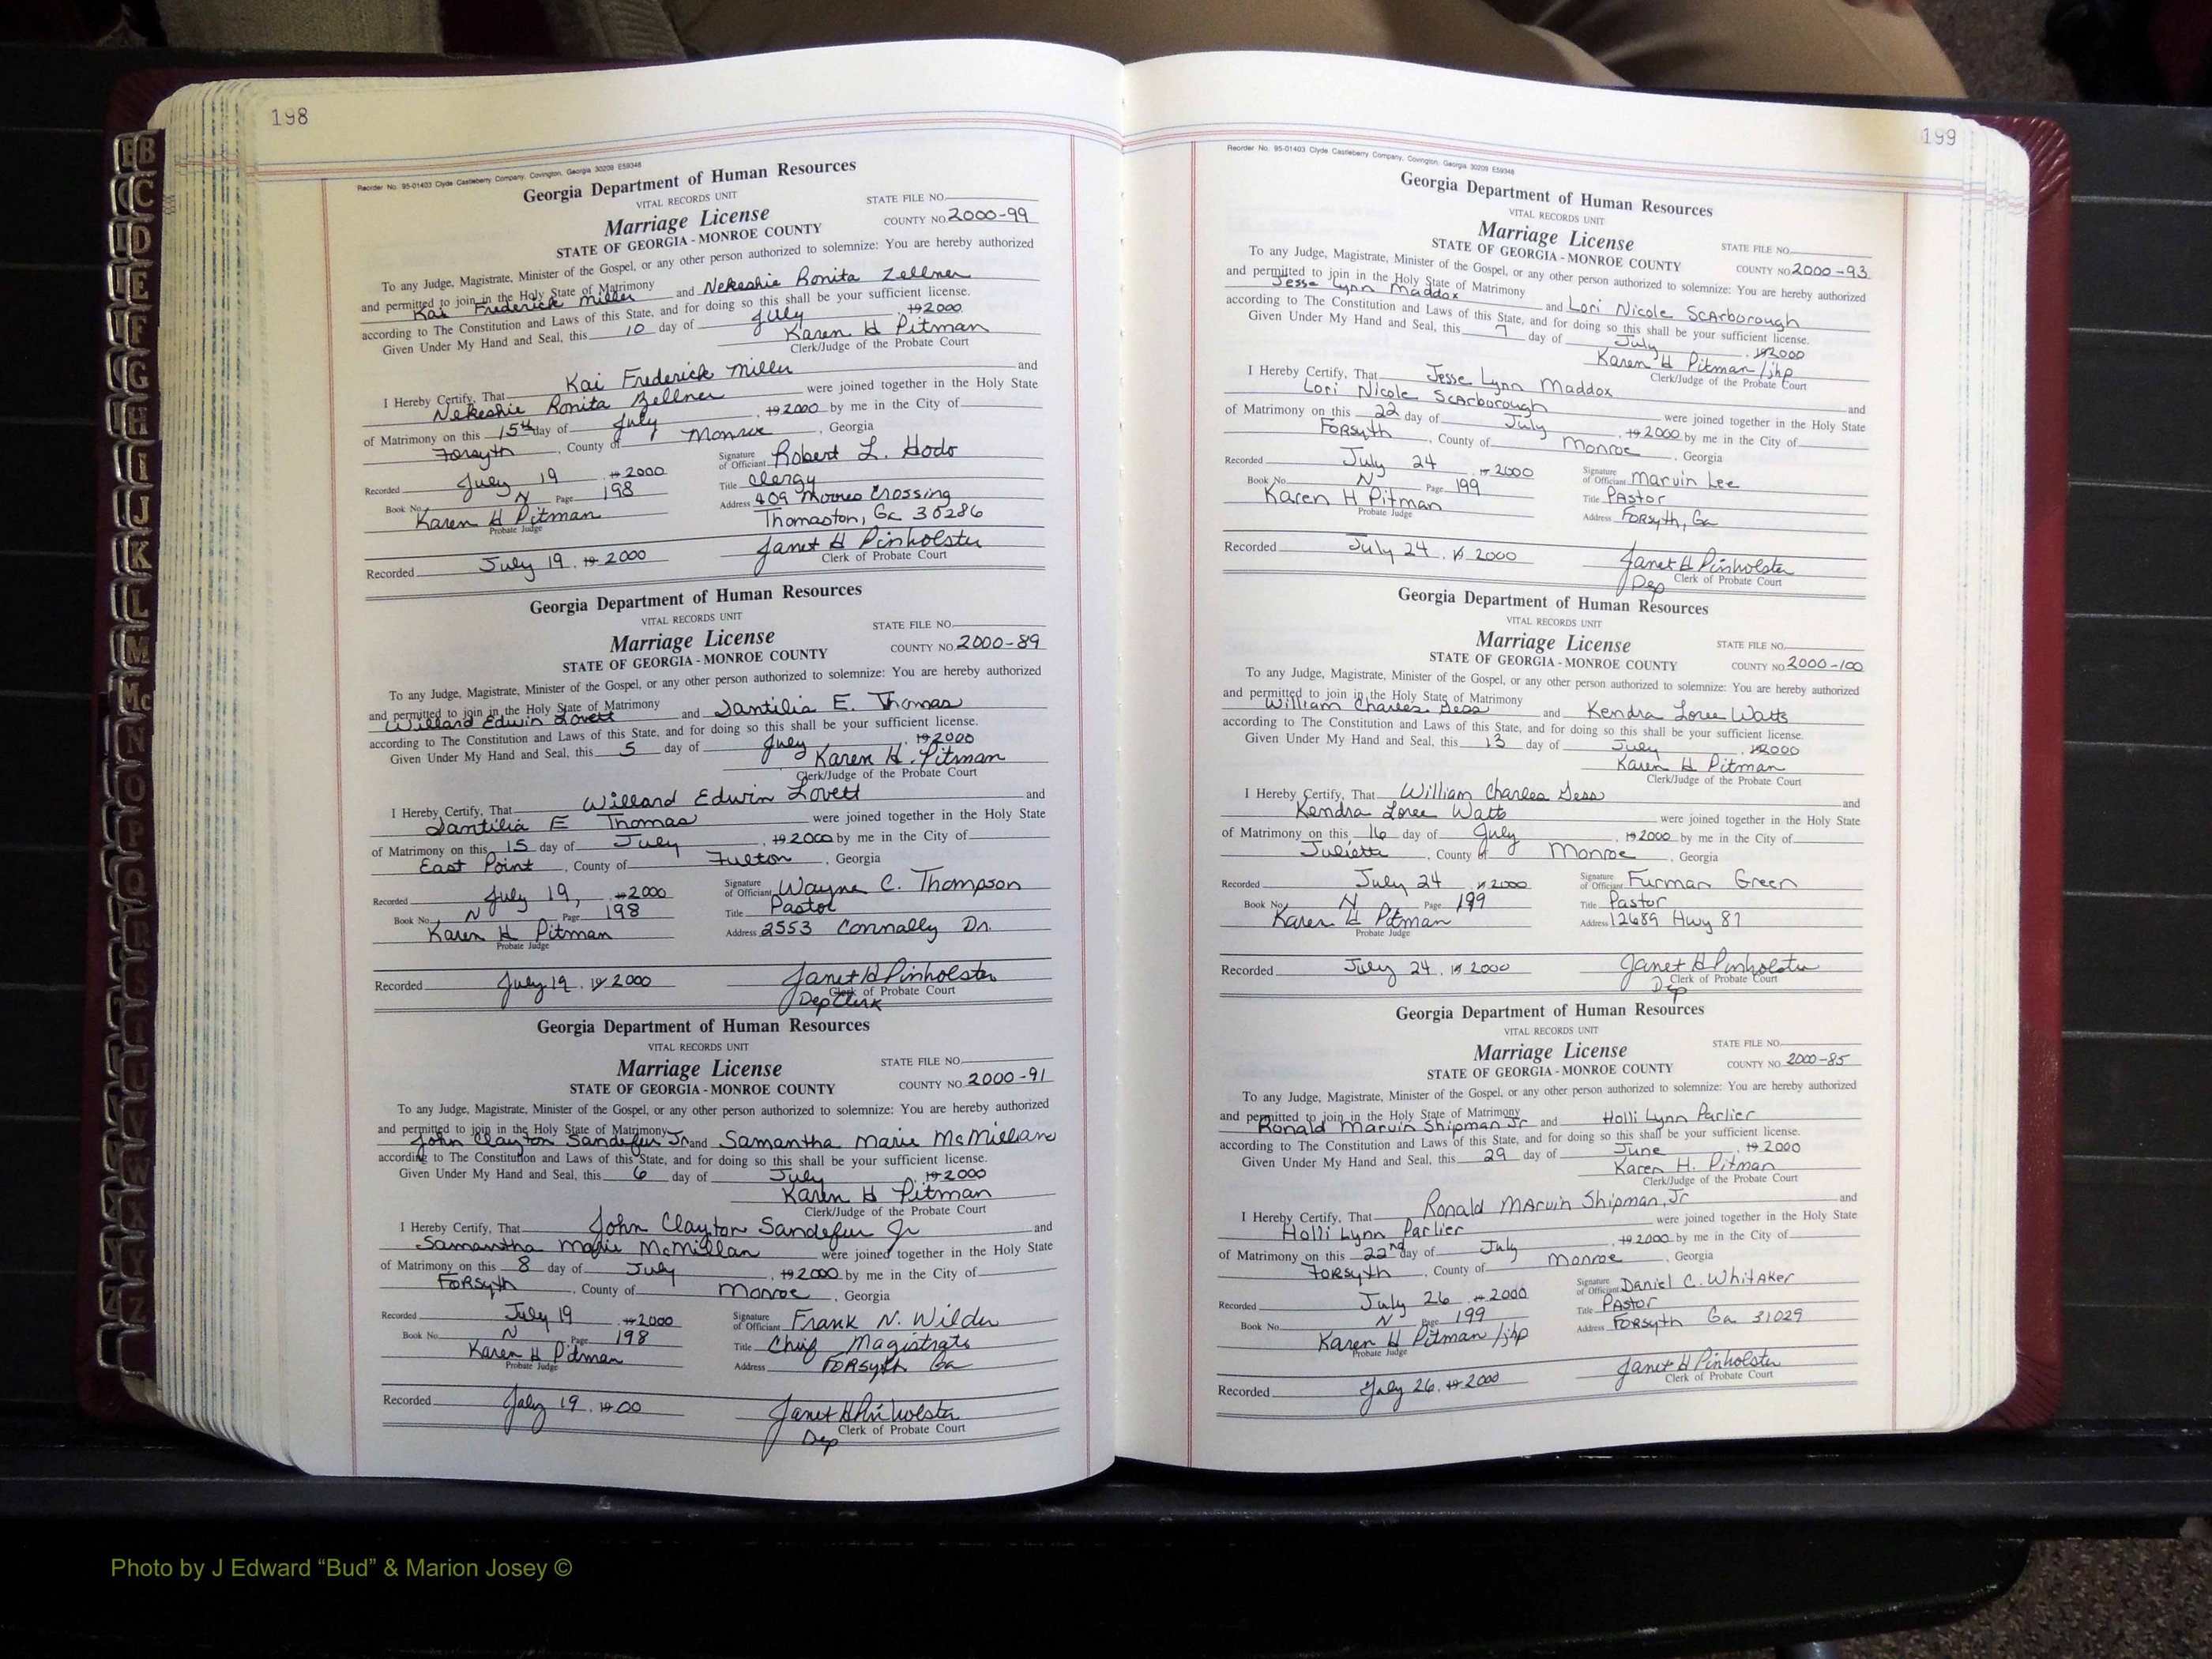 198
Reorder No. 95-01403 Clyde Castleberry Company, Covington, Georgia 30209 E59348
Georgia Department of Human Resources
VITAL RECORDS UNIT
STATE FILE NO.
Marriage License
COUNTY NO. 2000-99
STATE OF GEORGIA - MONROE COUNTY
To any Judge, Magistrate, Minister of the Gospel, or any other person authorized to solemnize: You are hereby authorized
and permitted to join in the Holy State of Matrimony
Kai Frederick Miller and Nekeshie Ronita Zellner
according to The Constitution and Laws of this State, and for doing so this shall be your sufficient license.
Given Under My Hand and Seal, this 10 day of July, 19 2000
Karen H Pitman
Clerk/Judge of the Probate Court
I Hereby Certify, That Kai Frederick Miller and
Nekeshie Ronita Zellner were joined together in the Holy State
of Matrimony on this 15th day of July, 19 2000 by me in the City of
Forsyth, County of Monroe, Georgia
Recorded July 19 19 2000 Signature of Officiant Robert L. Hodo
Book No. N Page 198 Title Clergy
Karen H Pitman Address 409 Moores Crossing
Probate Judge Thomaston, Ga 30286
Recorded July 19, 19 2000 Janet H Pinholster
Clerk of Probate Court
Georgia Department of Human Resources
VITAL RECORDS UNIT
STATE FILE NO.
Marriage License
COUNTY NO. 2000-89
STATE OF GEORGIA - MONROE COUNTY
To any Judge, Magistrate, Minister of the Gospel, or any other person authorized to solemnize: You are hereby authorized
and permitted to join in the Holy State of Matrimony
Willard Edwin Lovett and Santilia E. Thomas
according to The Constitution and Laws of this State, and for doing so this shall be your sufficient license.
Given Under My Hand and Seal, this 5 day of July, 19 2000
Karen H. Pitman
Clerk/Judge of the Probate Court
I Hereby Certify, That Willard Edwin Lovett and
Santilia E Thomas were joined together in the Holy State
of Matrimony on this 15 day of July, 19 2000 by me in the City of
East Point, County of Fulton, Georgia
Recorded July 19, 19 2000 Signature of Officiant Wayne C. Thompson
Book No. N Page 198 Title Pastor
Karen H Pitman Address 2553 Connally Dr.
Probate Judge
Recorded July 19, 19 2000 Janet H Pinholster
Clerk of Probate Court
Dep Clerk
Georgia Department of Human Resources
VITAL RECORDS UNIT
STATE FILE NO.
Marriage License
COUNTY NO. 2000-91
STATE OF GEORGIA - MONROE COUNTY
To any Judge, Magistrate, Minister of the Gospel, or any other person authorized to solemnize: You are hereby authorized
and permitted to join in the Holy State of Matrimony
John Clayton Sandefur Jr and Samantha Marie McMillan
according to The Constitution and Laws of this State, and for doing so this shall be your sufficient license.
Given Under My Hand and Seal, this 6 day of July, 19 2000
Karen H Pitman
Clerk/Judge of the Probate Court
I Hereby Certify, That John Clayton Sandefur Jr and
Samantha Marie McMillan were joined together in the Holy State
of Matrimony on this 8 day of July, 19 2000 by me in the City of
Forsyth, County of Monroe, Georgia
Recorded July 19 19 2000 Signature of Officiant Frank N. Wilder
Book No. N Page 198 Title Chief Magistrate
Karen H Pitman Address Forsyth Ga
Probate Judge
Recorded July 19, 19 00 Janet H Pinholster
Clerk of Probate Court
Dep
199
Reorder No. 95-01403 Clyde Castleberry Company, Covington, Georgia 30209 E59348
Georgia Department of Human Resources
VITAL RECORDS UNIT
Marriage License
STATE FILE NO.
STATE OF GEORGIA - MONROE COUNTY
COUNTY NO. 2000-93
To any Judge, Magistrate, Minister of the Gospel, or any other person authorized to solemnize: You are hereby authorized
and permitted to join in the Holy State of Matrimony
Jesse Lynn Maddox and Lori Nicole Scarborough
according to The Constitution and Laws of this State, and for doing so this shall be your sufficient license.
Given Under My Hand and Seal, this 7 day of July, 19 2000
Karen H Pitman /jhp
Clerk/Judge of the Probate Court
I Hereby Certify, That Jesse Lynn Maddox and
Lori Nicole Scarborough were joined together in the Holy State
of Matrimony on this 22 day of July, 19 2000 by me in the City of
Forsyth, County of Monroe, Georgia
Recorded July 24, 19 2000 Signature of Officiant Marvin Lee
Book No. N Page 199 Title Pastor
Karen H Pitman Address Forsyth, Ga
Probate Judge
Recorded July 24, 19 2000 Janet H Pinholster
Clerk of Probate Court
Dep
Georgia Department of Human Resources
VITAL RECORDS UNIT
Marriage License
STATE FILE NO.
STATE OF GEORGIA - MONROE COUNTY
COUNTY NO. 2000-100
To any Judge, Magistrate, Minister of the Gospel, or any other person authorized to solemnize: You are hereby authorized
and permitted to join in the Holy State of Matrimony
William Charles Gess and Kendra Loree Watts
according to The Constitution and Laws of this State, and for doing so this shall be your sufficient license.
Given Under My Hand and Seal, this 13 day of July, 19 2000
Karen H Pitman
Clerk/Judge of the Probate Court
I Hereby Certify, That William Charles Gess and
Kendra Loree Watts were joined together in the Holy State
of Matrimony on this 16 day of July, 19 2000 by me in the City of
Juliette, County of Monroe, Georgia
Recorded July 24, 19 2000 Signature of Officiant Furman Green
Book No. N Page 199 Title Pastor
Karen H Pitman Address 12689 Hwy 87
Probate Judge
Recorded July 24, 19 2000 Janet H Pinholster
Clerk of Probate Court
Dep
Georgia Department of Human Resources
VITAL RECORDS UNIT
STATE FILE NO.
Marriage License
COUNTY NO. 2000-85
STATE OF GEORGIA - MONROE COUNTY
To any Judge, Magistrate, Minister of the Gospel, or any other person authorized to solemnize: You are hereby authorized
and permitted to join in the Holy State of Matrimony
Ronald Marvin Shipman Jr and Holli Lynn Parlier
according to The Constitution and Laws of this State, and for doing so this shall be your sufficient license.
Given Under My Hand and Seal, this 29 day of June, 19 2000
Karen H. Pitman
Clerk/Judge of the Probate Court
I Hereby Certify, That Ronald Marvin Shipman, Jr and
Holli Lynn Parlier were joined together in the Holy State
of Matrimony on this 22nd day of July, 19 2000 by me in the City of
Forsyth, County of Monroe, Georgia
Recorded July 26, 19 2000 Signature of Officiant Daniel C. Whitaker
Book No. N Page 199 Title Pastor
Karen H Pitman /jhp Address Forsyth Ga 31029
Probate Judge
Recorded July 26, 19 2000 Janet H Pinholster
Clerk of Probate Court
B
C
D
E
F
G
H
I
J
K
L
M
Mc
N
O
P
Q
R
V
W
X
Y
Z
Photo by J Edward “Bud” & Marion Josey ©